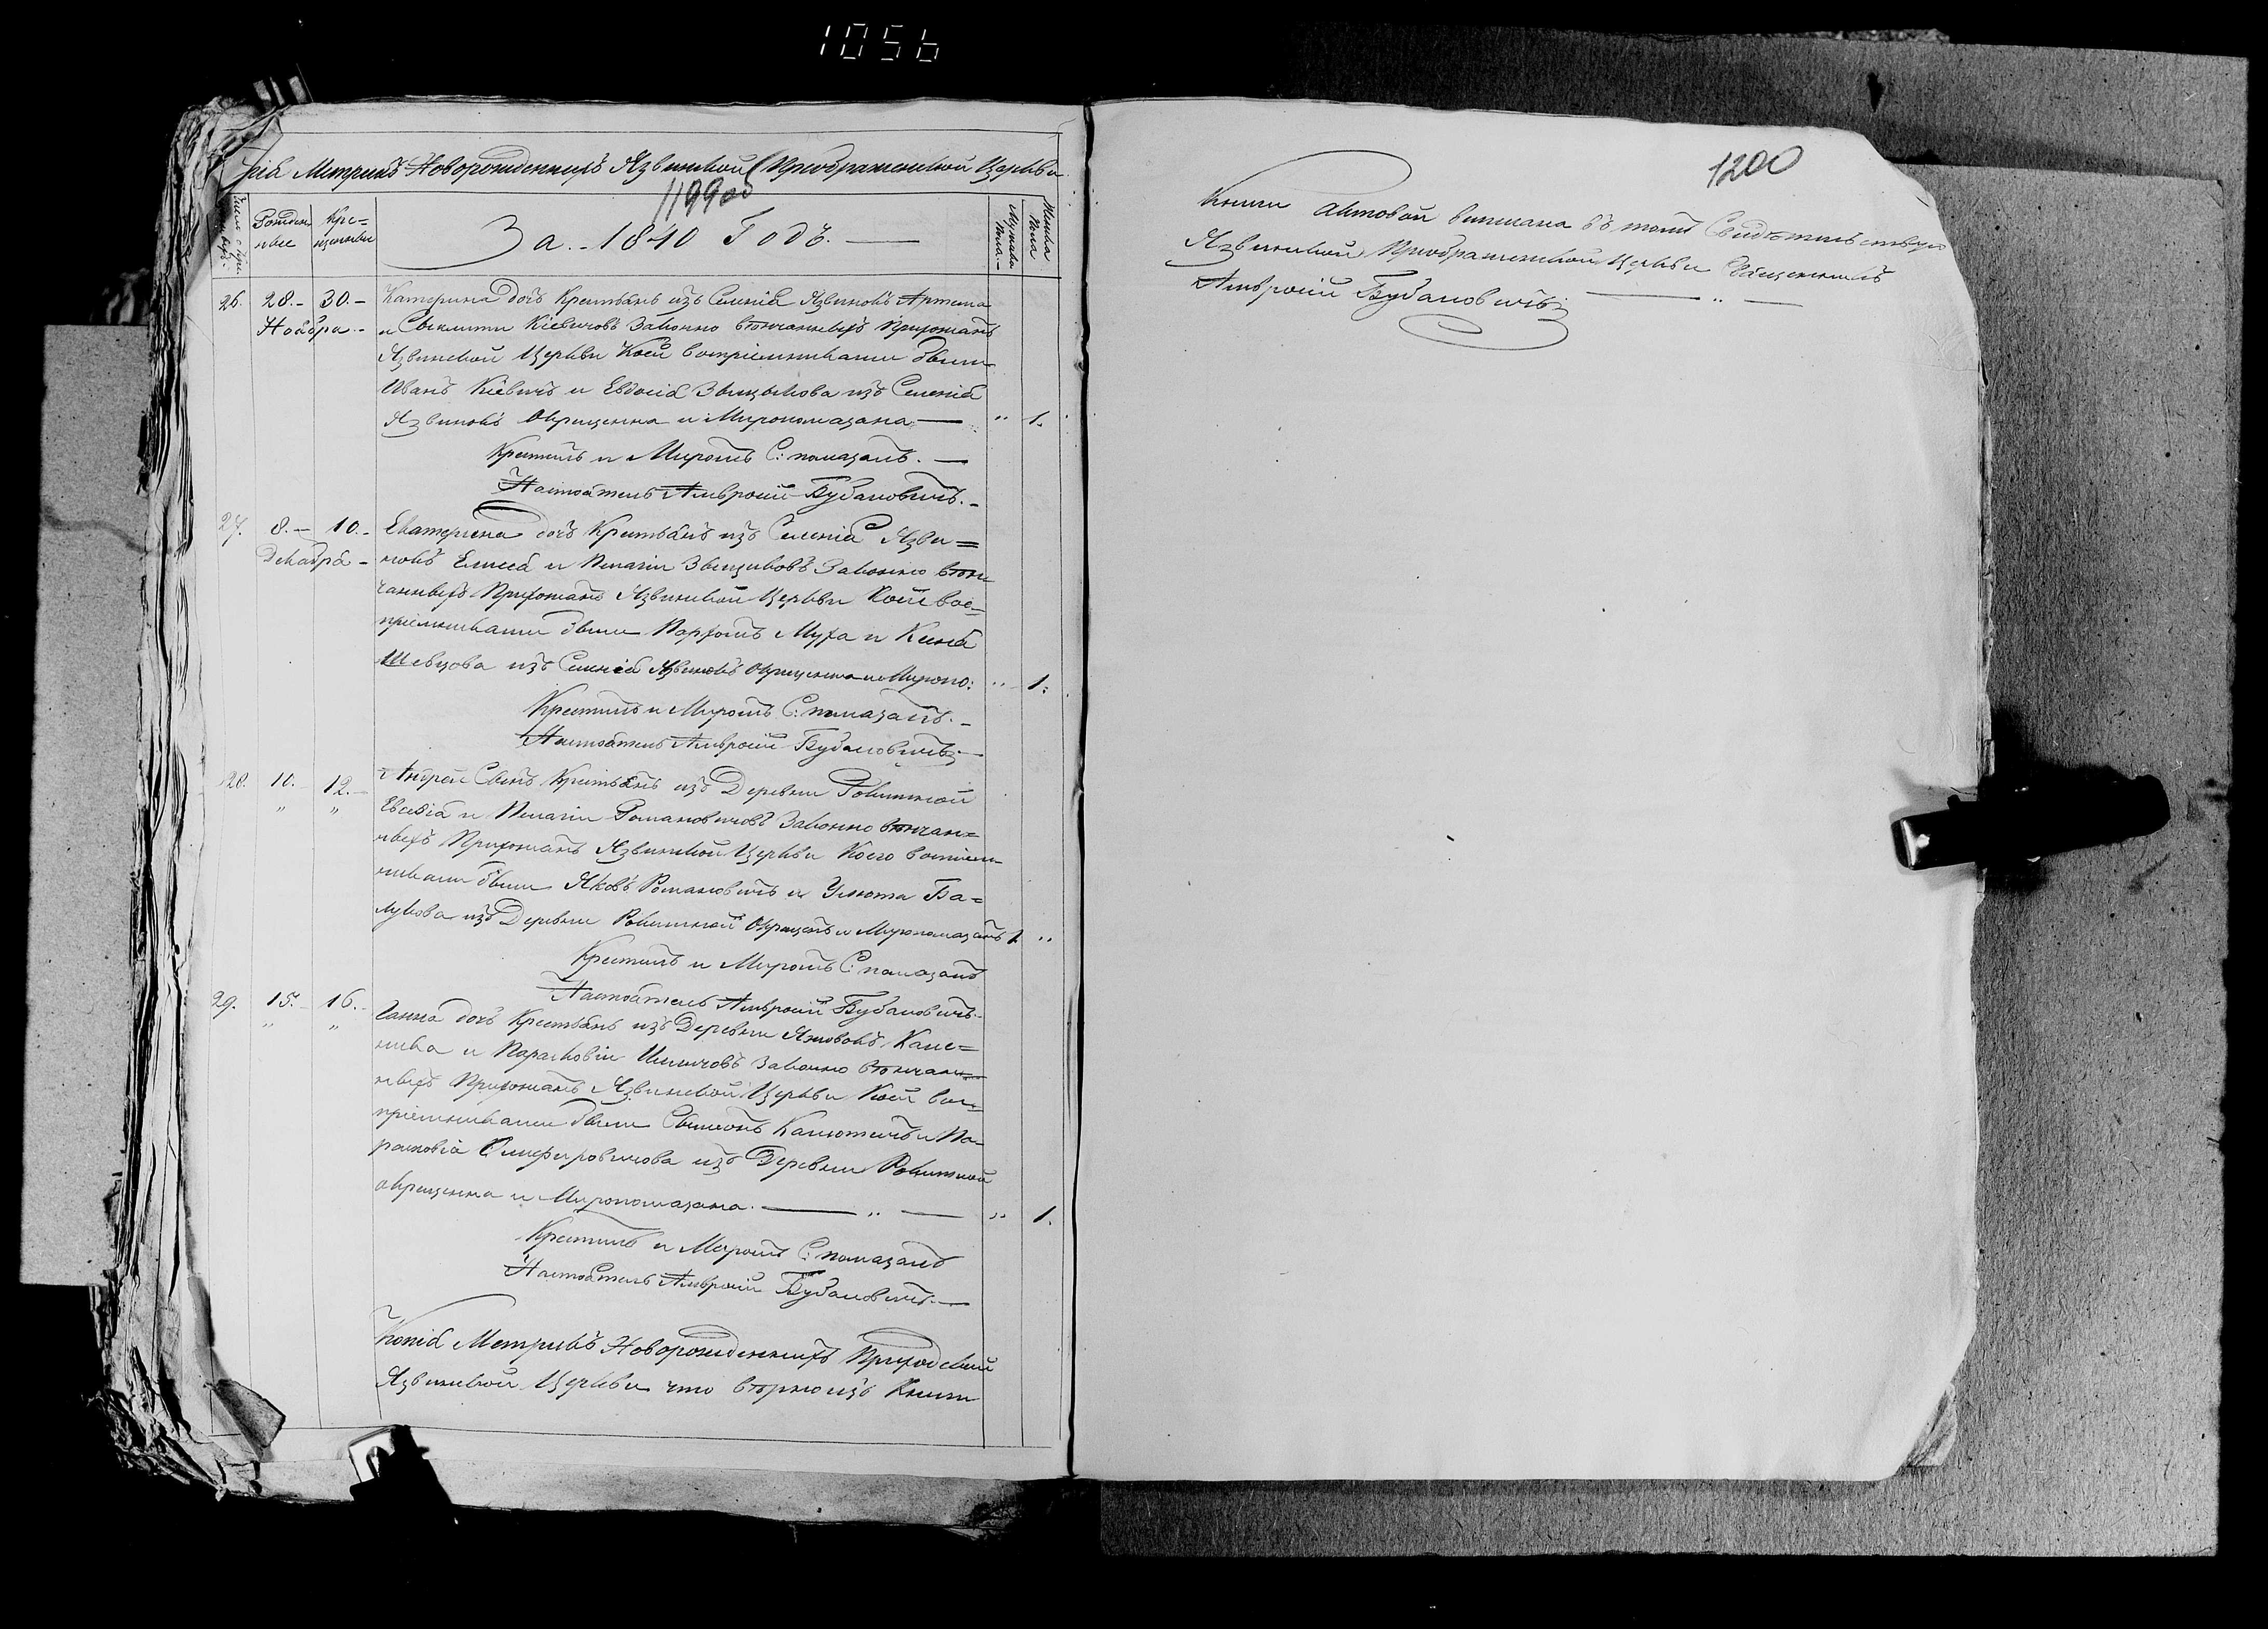 1056
пія Метрикъ Новорожденныхъ Язвинской Преображенской Церкви
1199об
Рожде-
ніе
Кре-
щенія
За. - 1840 Годъ. —
Мужска
Пола. -
Женска
Пола
26. 28. - 30. - Катерина дочъ Крестьянъ изъ Селенія Язвинокъ Артема
Ноября. - и Кіевичовъ Законно вѣнчанныхъ Прихожанъ
Язвинской Церкви Коей воспріемниками были
Иванъ Кіевичъ и Евдокія изъ Селенія
Язвинокъ Окрищенна и Миропомазана — " 1.
Крестилъ и Миромъ С: помазалъ. —
Настоятель Амвросій Бубановичъ. -
27. 8. - 10. - Екатерина дочъ Крестьянъ изъ Селенія Язви=
Декабря - нокъ Елисея и Пелагіи Законно вѣн
чанныхъ Прихожанъ Язвинской Церкви Коей вос=
пріемниками были Парфенъ Муха и Ксенія
Шевцова изъ Селенія Язвинокъ Окрищенна и Миропо: " 1:
Крестилъ и Миромъ С: помазалъ. -
Настоятель Амвросій Бубановичъ. —
28. 10. - 12. - Андрей Сынъ Крестьянъ изъ Деревни Ровитной
" " Евсевія и Пелагіи Романовичовъ Законно вѣнчан=
ныхъ Прихожанъ Язвинской Церкви Коего воспріем
никами были Яковъ Романовичъ и Улюта Ба=
лукова изъ Деревни Окрищенъ и Миропомазанъ 1. "
Крестилъ и Миромъ С: помазалъ
Настоятель Амвросій Бубановичъ. -
29. 15. - 16. - Ганна дочъ Крестьянъ изъ Деревни Яновокъ
" " и Парасковіи Законно вѣнчан
ныхъ Прихожанъ Язвинской Церкви Коей вос=
пріемниками были Сымеонъ и Па-
расковія изъ Деревни
окрищенна и Миропомазана. — " — " 1.
Крестилъ и Миромъ С: помазалъ
Настоятель Амвросій Бубановичъ. —
Копія Метрикъ Новорожденныхъ Приходской
Язвинской Церкви что вѣрно изъ Книги
1200
Книги Актовой выписана въ томъ Свидѣтельствую
Язвинской Преображенской Церкви Священникъ
Амвросій Бубановичъ — " —